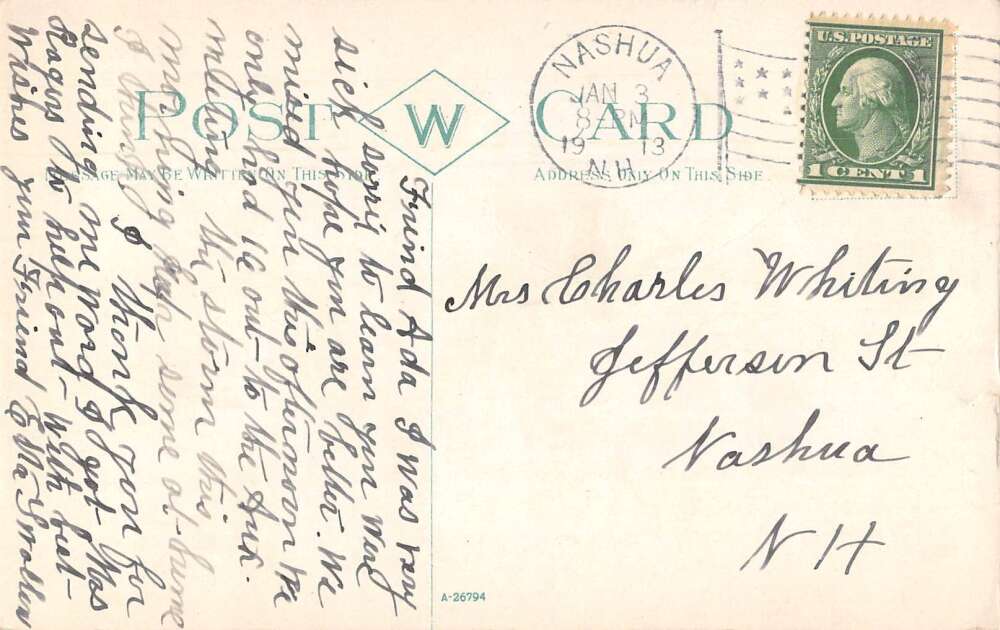 POST W CARD
MESSAGE MAY BE WRITTEN ON THIS SIDE
ADDRESS ONLY ON THIS SIDE
NASHUA
JAN 3
8-PM
1913
N.H.
U.S. POSTAGE
1 CENT 1
Mrs Charles Whiting
Jefferson St
Nashua
N H
Friend Ada I was very
sick sorri to learn you were
hope you are better. We
missed you this afternoon we
only had 12 out to the Aux.
meeting the storm this
morning kept some at home
I think I thank you for
sending me word I got Mrs
Ragan to help out - with best
Wishes your Friend Etta
A-26794